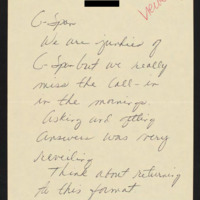 C-Span
We are junkies of
C-Span but we really
miss the call-in
in the mornings.
Asking and getting
answers was very
revealing
Think about returning
to this format